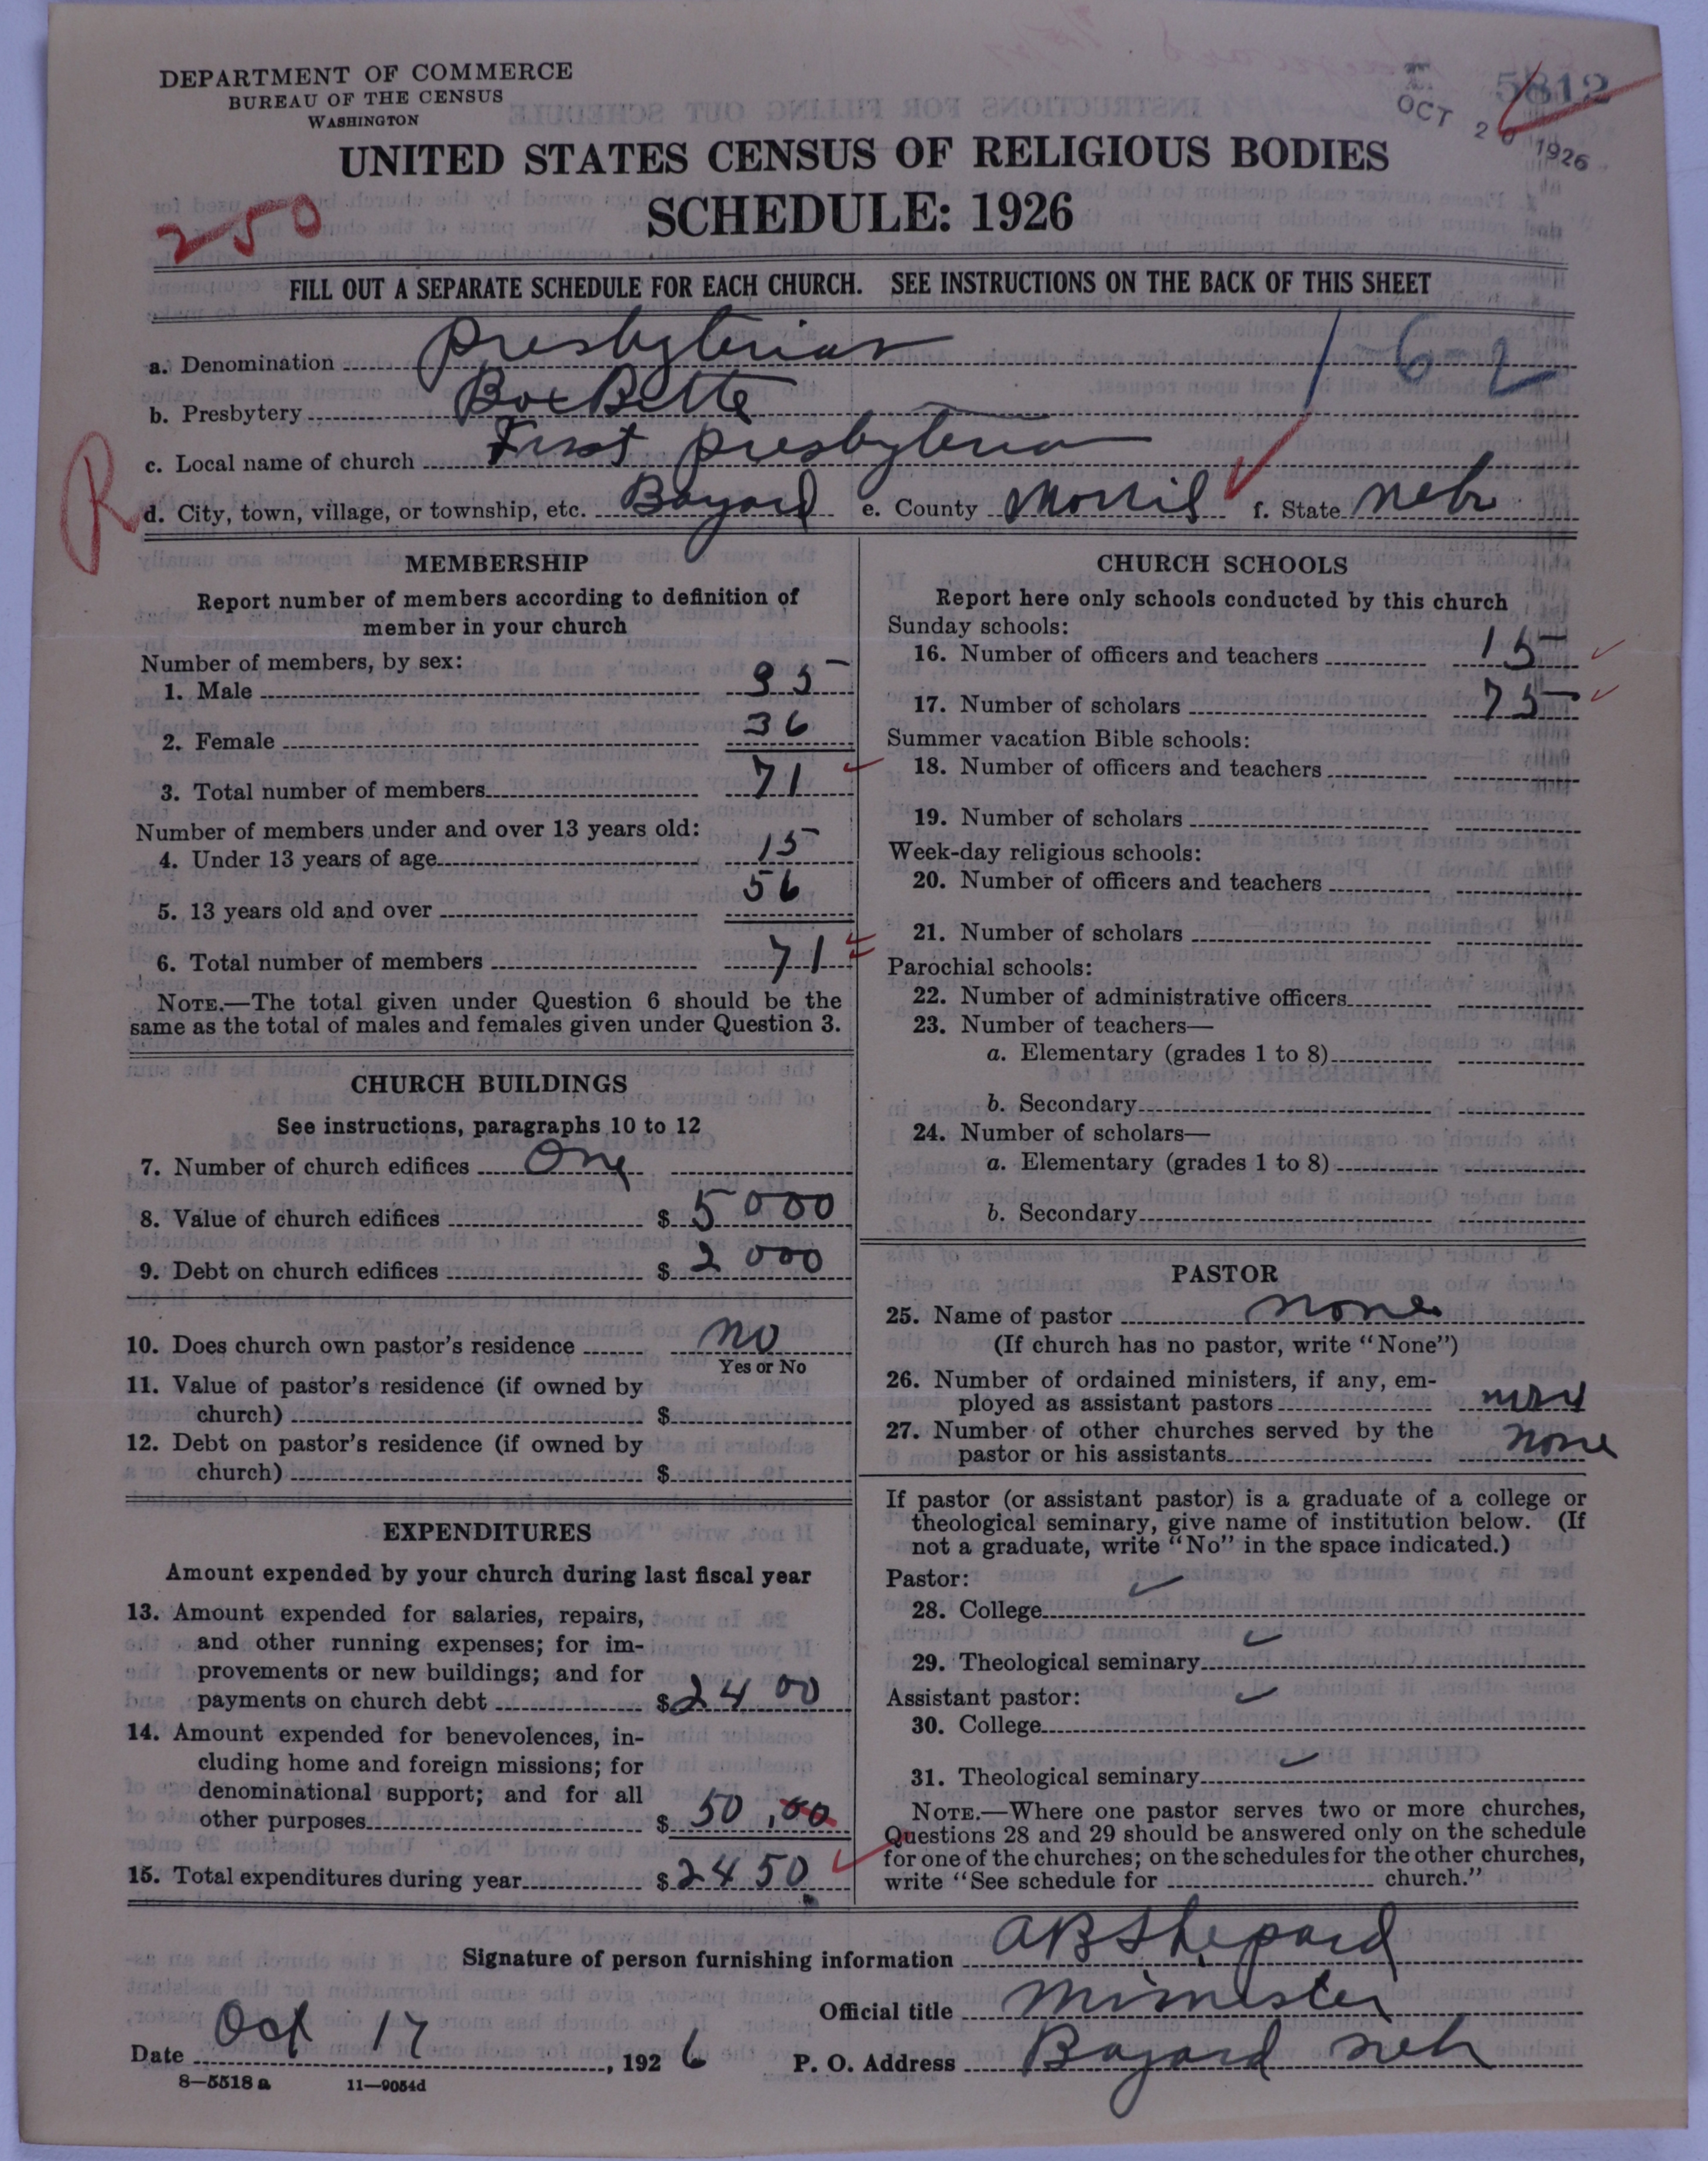 DEPARTMENT OF COMMERCE
BUREAU OF THE CENSUS
WASHINGTON
5812
OCT 20 1926
UNITED STATES CENSUS OF RELIGIOUS BODIES
SCHEDULE: 1926
250
FILL OUT A SEPARATE SCHEDULE FOR EACH CHURCH. SEE INSTRUCTIONS ON THE BACK OF THIS SHEET
a. Denomination Presbyterian
1-6-2
b. Presbytery Box Butte
c. Local name of church First Presbyterian
R
d. City, town, village, or township, etc. Bayard e. County Morril f. State Nebr
MEMBERSHIP
Report number of members according to definition of
member in your church
Number of members, by sex:
1. Male 35
2. Female 36
3. Total number of members 71
Number of members under and over 13 years old:
4. Under 13 years of age 15
5. 13 years old and over 56
6. Total number of members 71
NOTE.—The total given under Question 6 should be the
same as the total of males and females given under Question 3.
CHURCH BUILDINGS
See instructions, paragraphs 10 to 12
7. Number of church edifices One
8. Value of church edifices $ 5000
9. Debt on church edifices $ 2000
10. Does church own pastor's residence no
Yes or No
11. Value of pastor's residence (if owned by
church) $
12. Debt on pastor's residence (if owned by
church) $
EXPENDITURES
Amount expended by your church during last fiscal year
13. Amount expended for salaries, repairs,
and other running expenses; for im-
provements or new buildings; and for
payments on church debt $ 2400
14. Amount expended for benevolences, in-
cluding home and foreign missions; for
denominational support; and for all
other purposes $ 50.00
15. Total expenditures during year $ 2450
CHURCH SCHOOLS
Report here only schools conducted by this church
Sunday schools:
16. Number of officers and teachers 15
17. Number of scholars 75
Summer vacation Bible schools:
18. Number of officers and teachers
19. Number of scholars
Week-day religious schools:
20. Number of officers and teachers
21. Number of scholars
Parochial schools:
22. Number of administrative officers
23. Number of teachers—
a. Elementary (grades 1 to 8)
b. Secondary
24. Number of scholars—
a. Elementary (grades 1 to 8)
b. Secondary
PASTOR
25. Name of pastor none
(If church has no pastor, write "None")
26. Number of ordained ministers, if any, em-
ployed as assistant pastors
27. Number of other churches served by the
pastor or his assistants none
If pastor (or assistant pastor) is a graduate of a college or
theological seminary, give name of institution below. (If
not a graduate, write "No" in the space indicated.)
Pastor:
28. College
29. Theological seminary
Assistant pastor:
30. College
31. Theological seminary
NOTE.—Where one pastor serves two or more churches,
Questions 28 and 29 should be answered only on the schedule
for one of the churches; on the schedules for the other churches,
write "See schedule for church."
Signature of person furnishing information AB Shepard
Official title Minister
Date Oct 17, 1926 P. O. Address Bayard Neb
8—5518 a 11—9054d